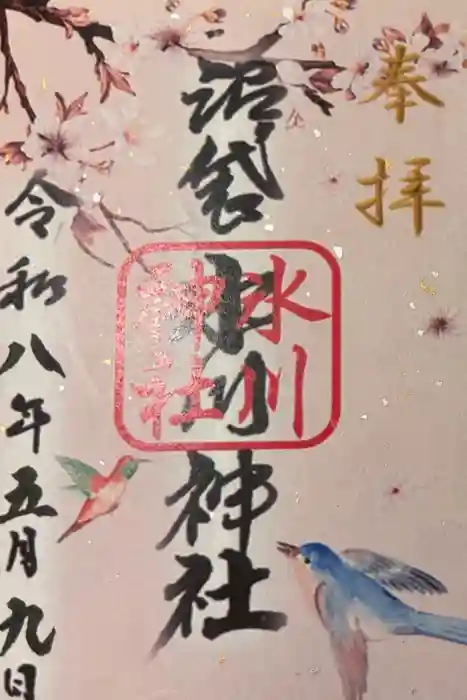 奉拝
沼袋氷川神社
氷川
神社
令和八年五月九日